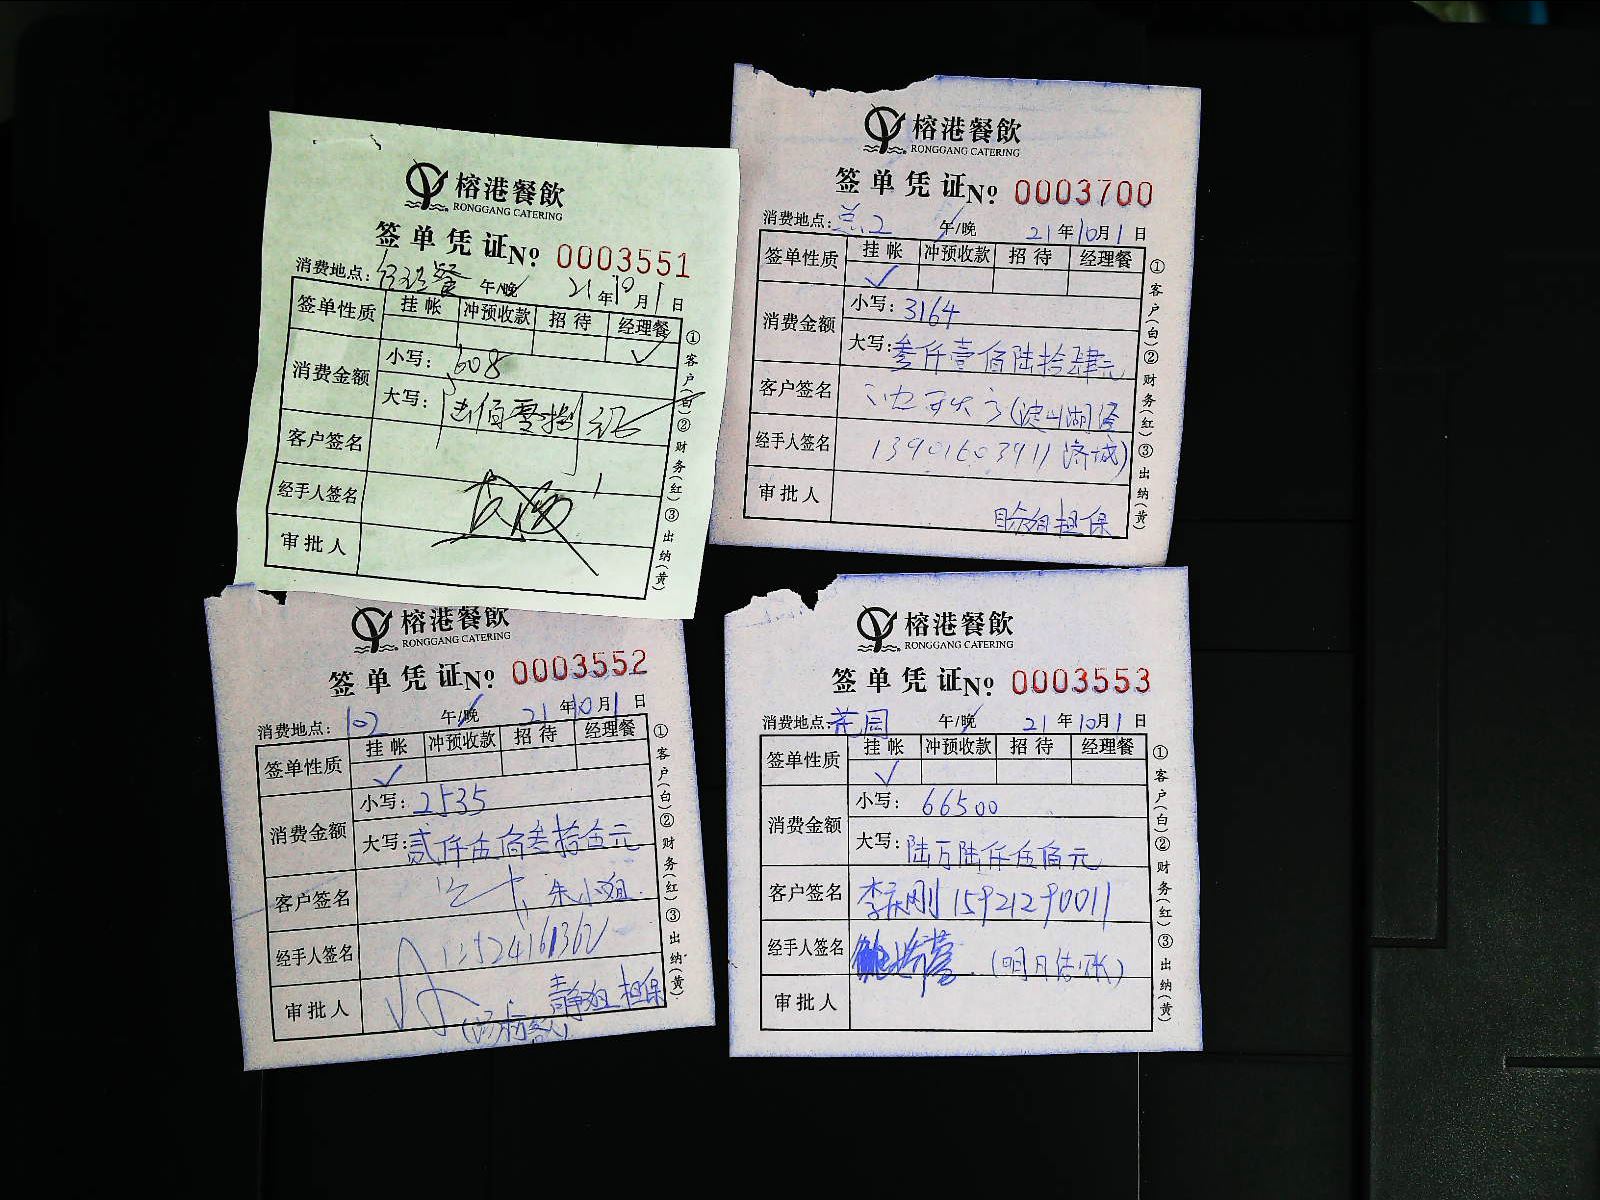 榕港餐飲
RONGGANG CATERING
签单凭证No. 0003551
消费地点: 经理餐 午/晚 21年10月1日
签单性质 挂帐 冲预收款 招待 经理餐
✓
消费金额 小写: 608
大写: 陆佰零捌元
客户签名
经手人签名
审批人
①客户(白)②财务(红)③出纳(黄)
榕港餐飲
RONGGANG CATERING
签单凭证No. 0003700
消费地点: 总2 午/晚 21年10月1日
签单性质 挂帐 冲预收款 招待 经理餐
✓
消费金额 小写: 3164
大写: 叁仟壹佰陆拾肆元
客户签名 (淀山湖经
经手人签名 13901603911 济城)
审批人
担保
①客户(白)②财务(红)③出纳(黄)
榕港餐飲
RONGGANG CATERING
签单凭证No. 0003552
消费地点: 102 午/晚 21年10月1日
签单性质 挂帐 冲预收款 招待 经理餐
✓
消费金额 小写: 2535
大写: 贰仟伍佰叁拾伍元
客户签名 朱小姐
经手人签名 13524161362
审批人 静姐担保
①客户(白)②财务(红)③出纳(黄)
榕港餐飲
RONGGANG CATERING
签单凭证No. 0003553
消费地点: 花园 午/晚 21年10月1日
签单性质 挂帐 冲预收款 招待 经理餐
✓
消费金额 小写: 66500
大写: 陆万陆仟伍佰元
客户签名 李庆刚 15921290011
经手人签名 (明日结账)
审批人
①客户(白)②财务(红)③出纳(黄)